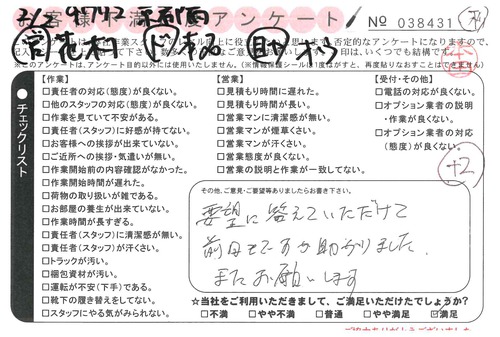 お客様不満足アンケート
№ 038431
【作業】
□責任者の対応(態度)が良くない。
□他のスタッフの対応(態度)が良くない。
□作業を見ていて不安がある。
□責任者(スタッフ)に好感が持てない。
□お客様への挨拶が出来ていない。
□ご近所への挨拶・気遣いが無い。
□作業開始前の内容確認がなかった。
□作業開始時間が遅れた。
□荷物の取り扱いが雑である。
□お部屋の養生が出来ていない。
□作業時間が長すぎる。
□責任者(スタッフ)に清潔感が無い。
□責任者(スタッフ)が汗くさい。
□トラックが汚い。
□梱包資材が汚い。
□運転が不安(下手)である。
□靴下の履き替えをしてない。
□スタッフにやる気がみられない。
【営業】
□見積もり時間に遅れた。
□見積もり時間が長い。
□営業マンに清潔感が無い。
□営業マンが煙草くさい。
□営業マンが汗くさい。
□営業態度が良くない。
□営業の説明と作業が一致してない。
【受付・その他】
□電話の対応が良くない。
□オプション業者の説明
・作業が良くない。
□オプション業者の対応
(態度)が良くない。
チェックリスト
その他、ご意見・ご要望等ありましたらお書き下さい。
要望に答えていただけて
前日までですが助かりました。
またお願いします
☆当社をご利用いただきまして、ご満足いただけたでしょうか?
□不満 □やや不満 □普通 □やや満足 ☑満足